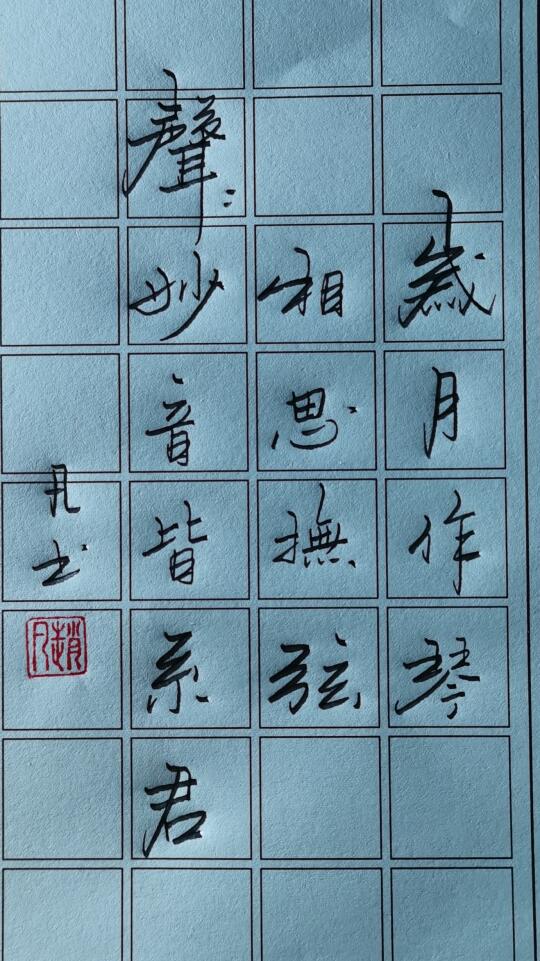 歲月作琴
相思撫弦
聲:妙音皆系君
凡书
趙凡